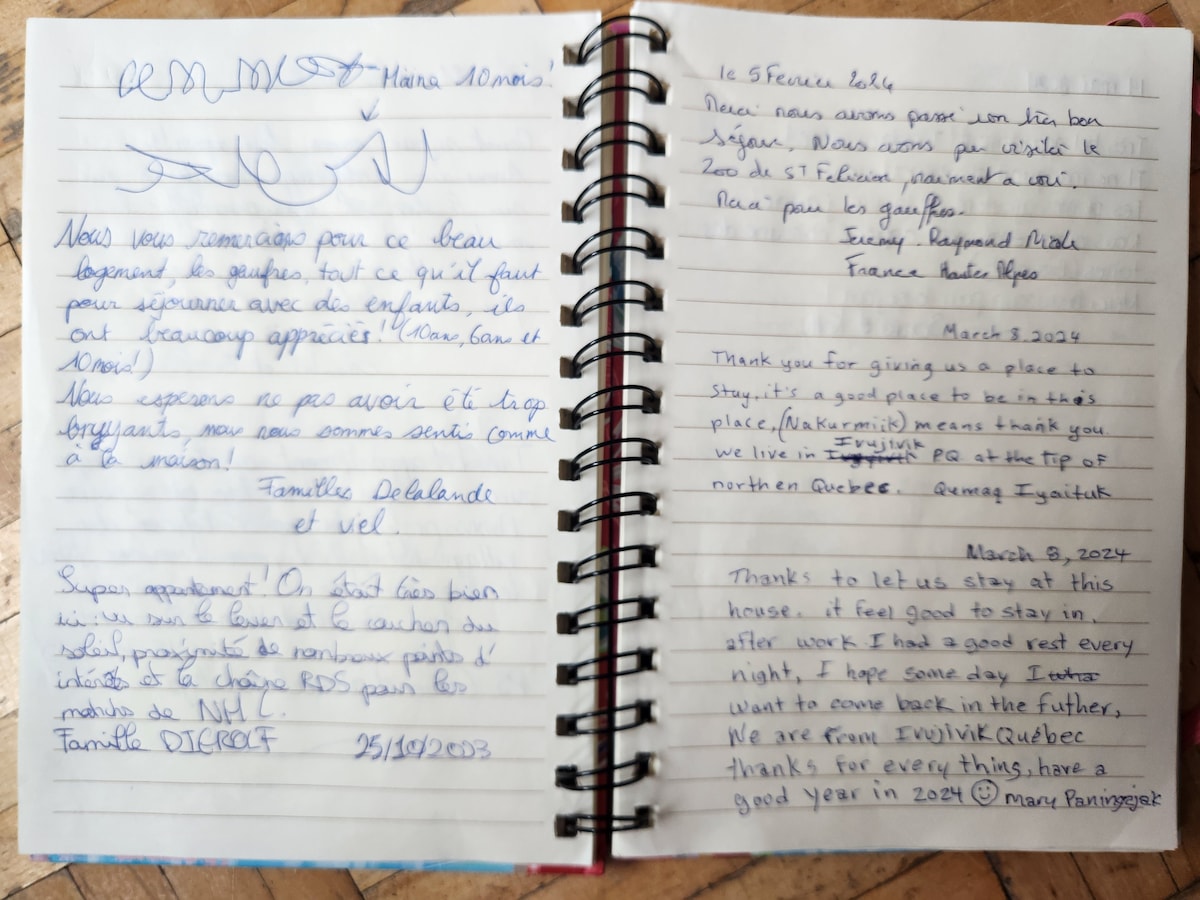 Maïna 10 mois!
Nous vous remercions pour ce beau
logement, les gaufres, tout ce qu'il faut
pour séjourner avec des enfants, ils
ont beaucoup appréciés! (10ans, 6ans et
10 mois!)
Nous esperons ne pas avoir été trop
bruyants, mais nous sommes sentis comme
à la maison!
Familles Delalande
et viel.
Super appartement! On était très bien
ici: vu sur le lever et le coucher du
soleil, proximité de nombreux points d'
intérêts et la chaîne RDS pour les
matchs de NHL.
Famille
25/10/2023
le 5 Fevrier 2024
Merci nous avons passé un très bon
séjour, Nous avons pu visiter le
Zoo de ST Felicien, vraiment a voir.
Merci pour les gauffres.
Jeremy. Raymond
France Hautes Alpes
March 8, 2024
Thank you for giving us a place to
stay, it's a good place to be in this
place, (Nakurmiik) means thank you.
we live in Ivujivik PQ at the tip of
northen Quebec. Qumaq Iyaituk
March 8, 2024
Thanks to let us stay at this
house. it feel good to stay in.
after work I had a good rest every
night, I hope some day I
want to come back in the futher,
We are from Ivujivik Québec
thanks for every thing, have a
good year in 2024 ☺ Mary Paningajak